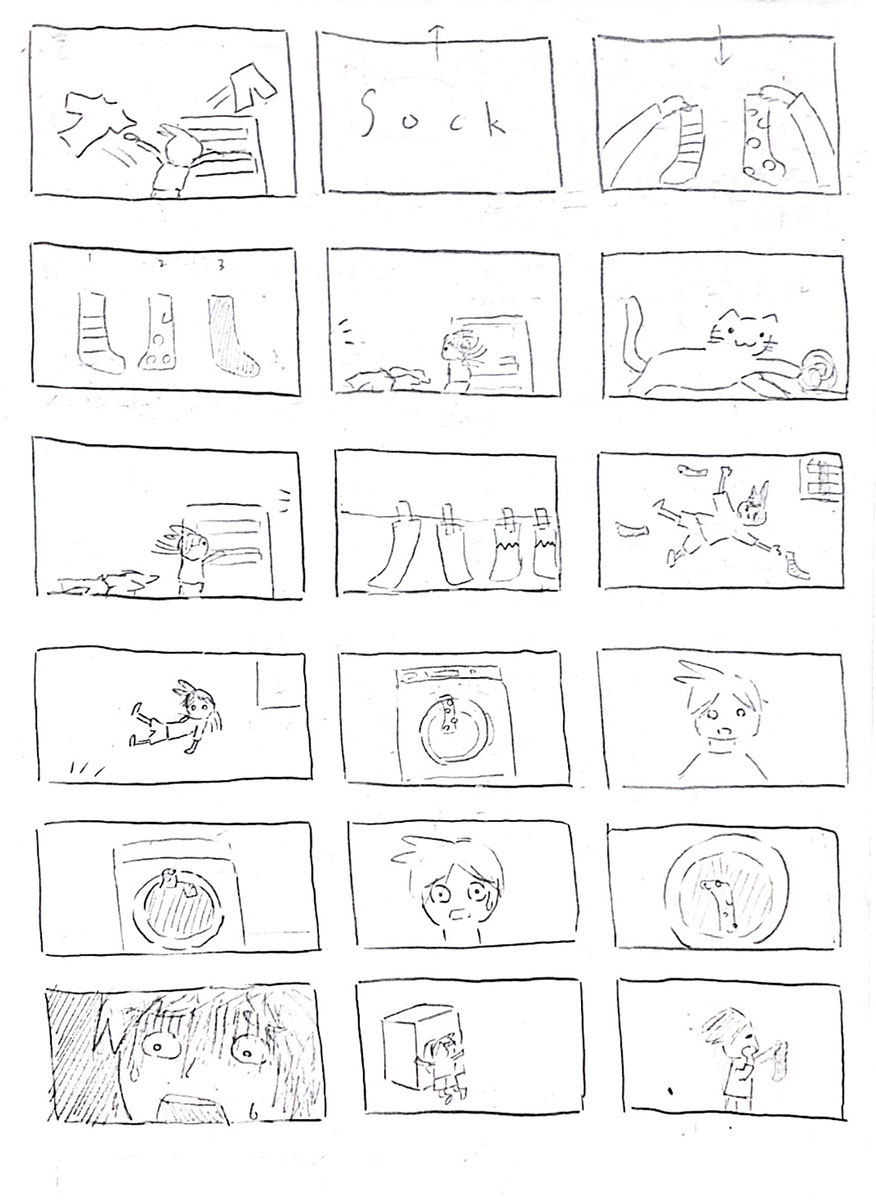 Sock
1 2 3